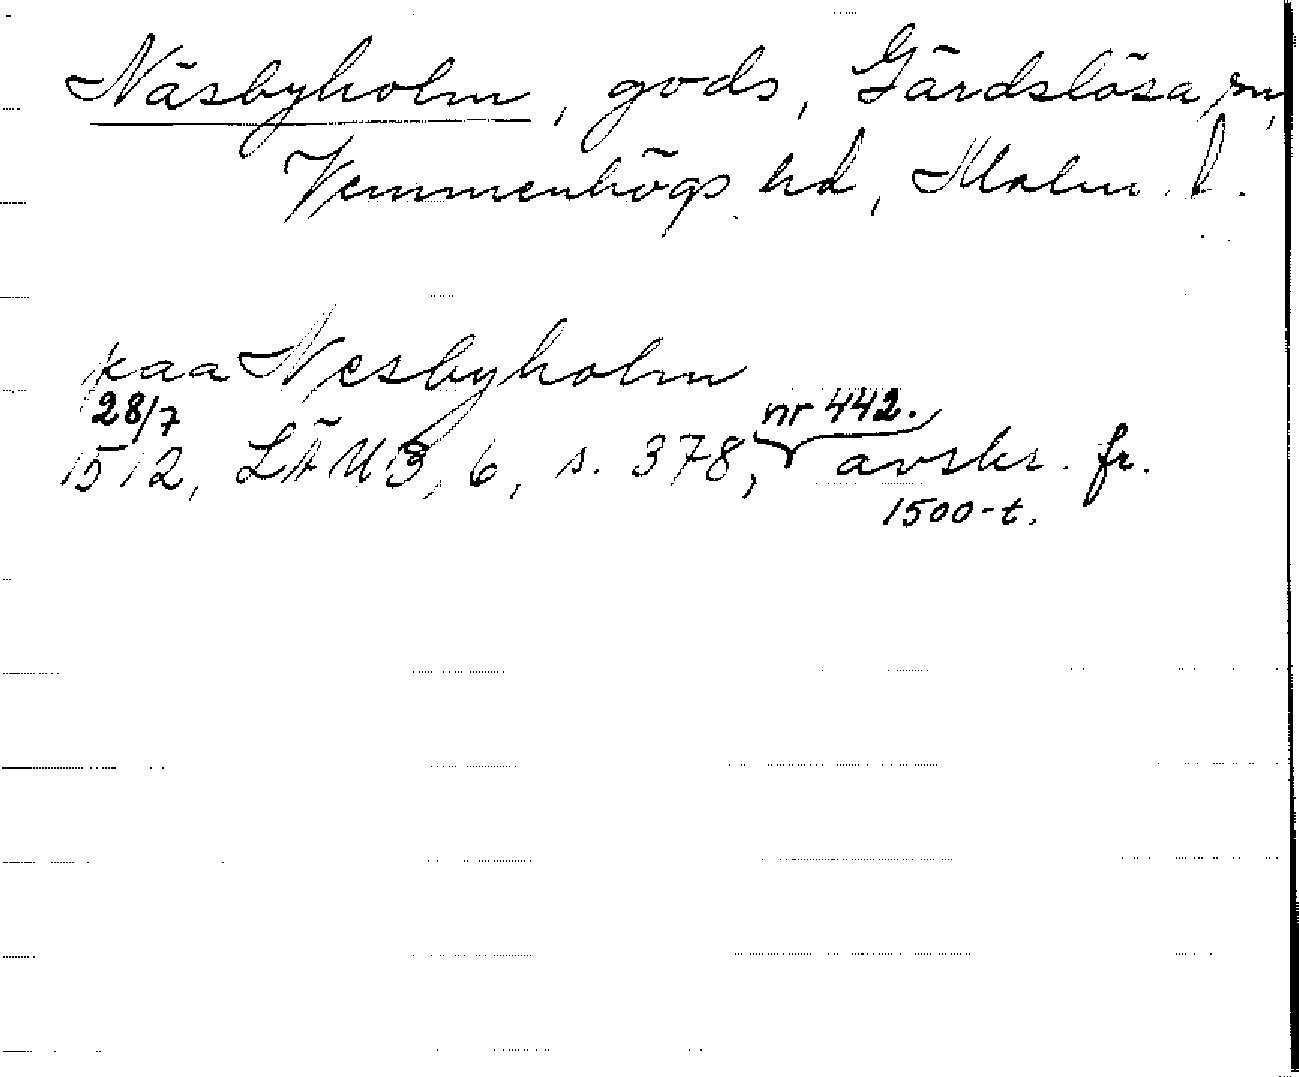 Näsbyholm, gods, Gärdslösa sn,
Vemmenhögs hd, Malm. l.
paa Nesbyholm
28/7 nr 442.
1512, LÄUB, 6, s. 378, avskr. fr.
1500-t.